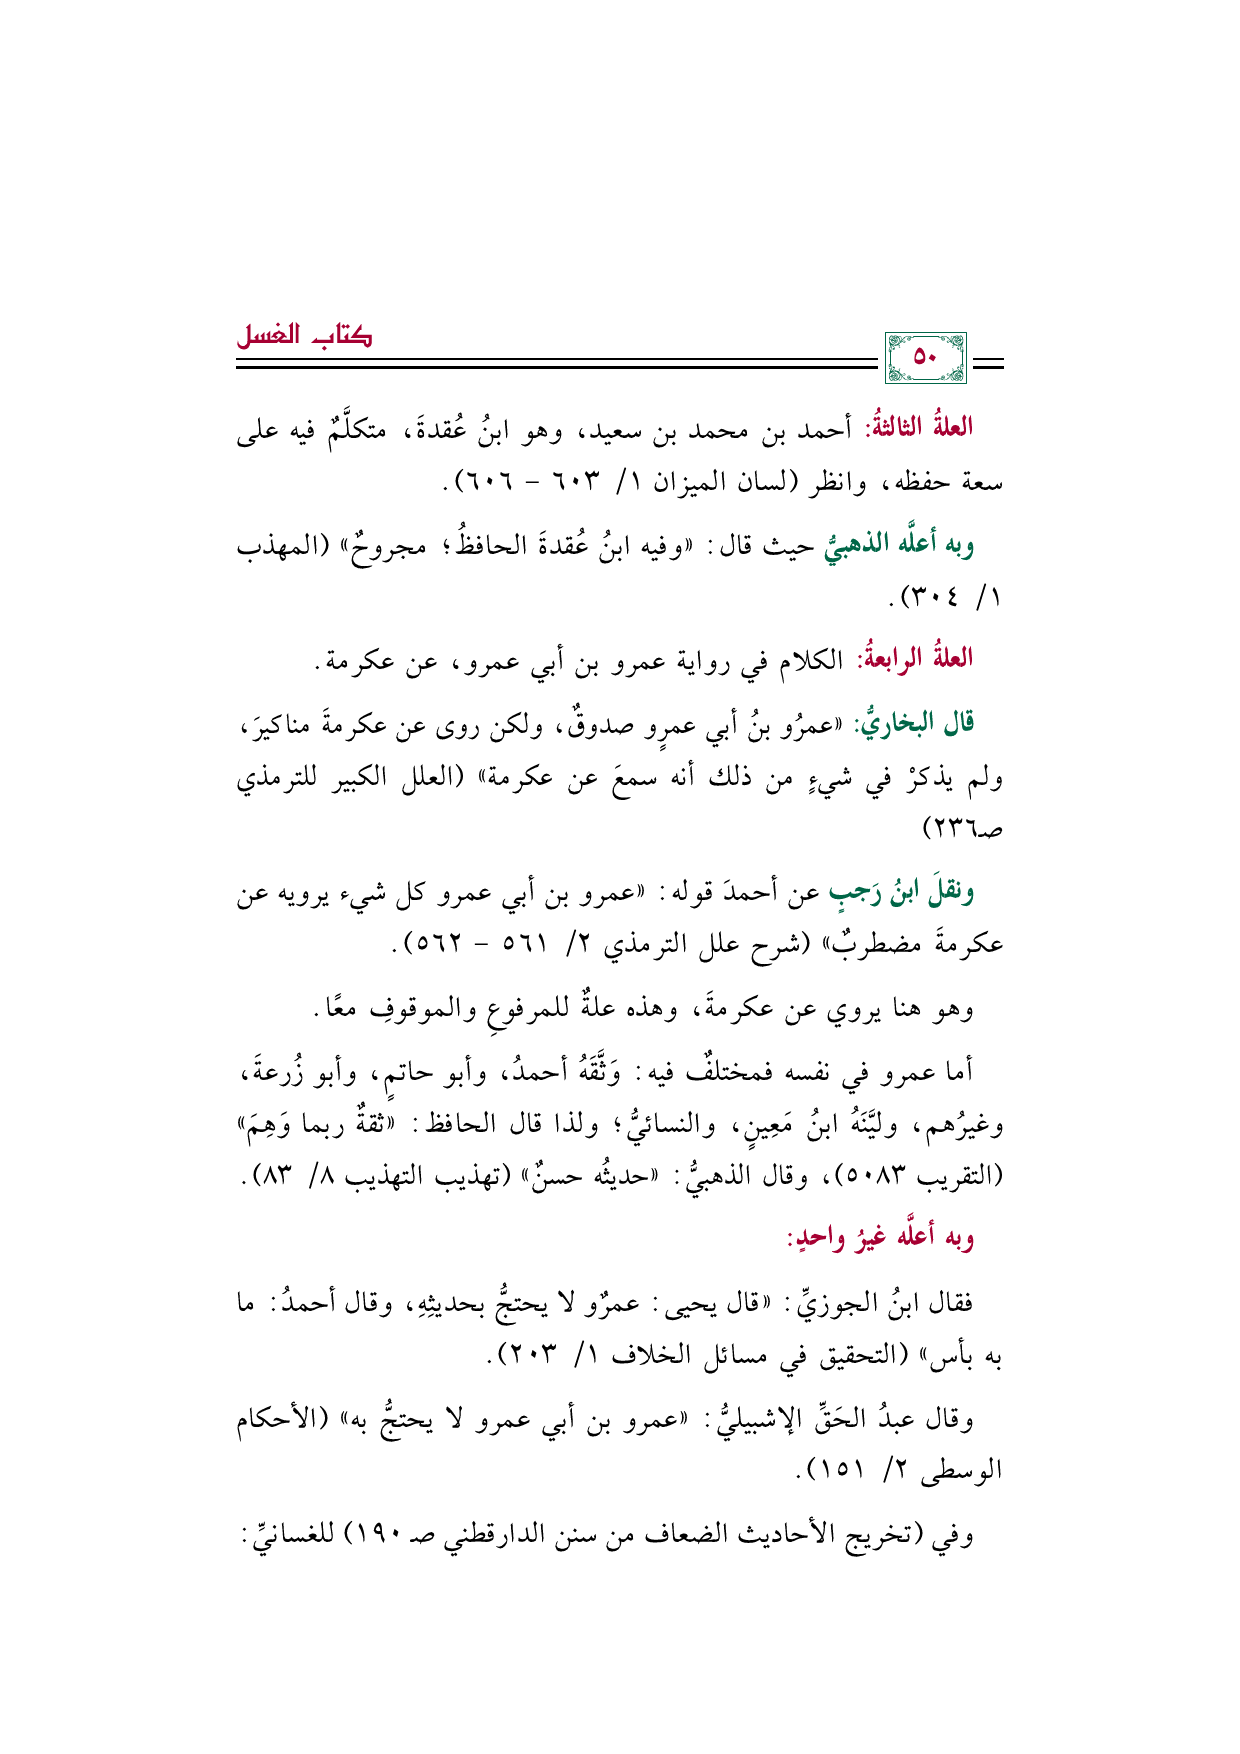 كتاب الغسل
٥٠
العلةُ الثالثةُ: أحمد بن محمد بن سعيد، وهو ابنُ عُقدةَ، متكلَّمٌ فيه على
سعة حفظه، وانظر (لسان الميزان ١/ ٦٠٣ - ٦٠٦).
وبه أعلَّه الذهبيُّ حيث قال: «وفيه ابنُ عُقدةَ الحافظُ؛ مجروحٌ» (المهذب
١/ ٣٠٤).
العلةُ الرابعةُ: الكلام في رواية عمرو بن أبي عمرو، عن عكرمة.
قال البخاريُّ: «عمرُو بنُ أبي عمرٍو صدوقٌ، ولكن روى عن عكرمةَ مناكيرَ،
ولم يذكرْ في شيءٍ من ذلك أنه سمعَ عن عكرمة» (العلل الكبير للترمذي
صـ٢٣٦)
ونقلَ ابنُ رَجبٍ عن أحمدَ قوله: «عمرو بن أبي عمرو كل شيء يرويه عن
عكرمةَ مضطربٌ» (شرح علل الترمذي ٢/ ٥٦١ - ٥٦٢).
وهو هنا يروي عن عكرمةَ، وهذه علةٌ للمرفوعِ والموقوفِ معًا.
أما عمرو في نفسه فمختلفٌ فيه: وَثَّقَهُ أحمدُ، وأبو حاتمٍ، وأبو زُرعةَ،
وغيرُهم، وليَّنَهُ ابنُ مَعِينٍ، والنسائيُّ؛ ولذا قال الحافظ: «ثقةٌ ربما وَهِمَ»
(التقريب ٥٠٨٣)، وقال الذهبيُّ: «حديثُه حسنٌ» (تهذيب التهذيب ٨/ ٨٣).
وبه أعلَّه غيرُ واحدٍ:
فقال ابنُ الجوزيِّ: «قال يحيى: عمرٌو لا يحتجُّ بحديثِهِ، وقال أحمدُ: ما
به بأس» (التحقيق في مسائل الخلاف ١/ ٢٠٣).
وقال عبدُ الحَقِّ الإشبيليُّ: «عمرو بن أبي عمرو لا يحتجُّ به» (الأحكام
الوسطى ٢/ ١٥١).
وفي (تخريج الأحاديث الضعاف من سنن الدارقطني صـ ١٩٠) للغسانيِّ: